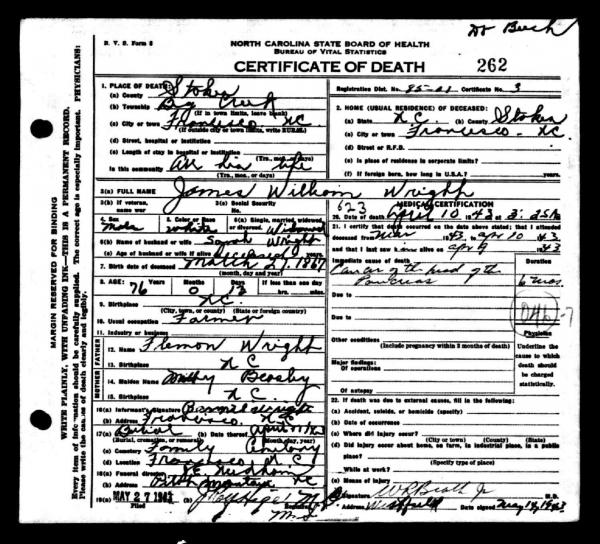 Dr Beech
R. V. S. Form 8
NORTH CAROLINA STATE BOARD OF HEALTH
BUREAU OF VITAL STATISTICS
CERTIFICATE OF DEATH 262
MARGIN RESERVED FOR BINDING
WRITE PLAINLY, WITH UNFADING INK—THIS IS A PERMANENT RECORD.
Every item of information should be carefully supplied. The correct age is especially important. PHYSICIANS:
Please write the causes of death clearly and legibly.
Registration Dist. No. 85- Certificate No. 3
1. PLACE OF DEATH:
(a) County Stokes
(b) Township Big Creek
(If in town limits, leave blank)
(c) City or town Francisco, NC
(If outside city or town limits, write RURAL)
(d) Street, hospital or institution
(e) Length of stay in hospital or institution
(Yrs., mos., or days)
In this community All his life
(Yrs., mos., or days)
2. HOME (USUAL RESIDENCE) OF DECEASED:
(a) State N.C. (b) County Stokes
(c) City or town Francisco, NC.
(d) Street or R.F.D.
(e) Is place of residence in corporate limits?
(f) If foreign born, how long in U.S.A.? Yrs.
3(a) FULL NAME James William Wright
3(b) If veteran, name war
3(c) Social Security No.
4. Sex Male
5. Color or Race white
6(a) Single, married, widowed or divorced. Widowed
6(b) Name of husband or wife Sarah Wright
6(c) Age of husband or wife if alive
7. Birth date of deceased March 27, 1867
(month, day and year)
8. AGE: 76 Months 0 Days 13 If less than one day
hrs. min.
9. Birthplace N.C.
(City, town, or county) (State or foreign country)
10. Usual occupation Farmer
11. Industry or business
FATHER
12. Name Flemon Wright
13. Birthplace N C.
MOTHER
14. Maiden Name Beasley
15. Birthplace N C.
16(a) Informant's Signature
(b) Address Francisco, N.C.
17(a) Burial (b) Date thereof April 11 1943
(Burial, cremation, or removal) (Month, day, year)
(c) Cemetery Family Cemetery
(d) Location Francisco N C
18(a) Funeral director
(b) Address Pilot Mountain NC
19(a) MAY 27 1943
Filed Registrar
MEDICAL CERTIFICATION
623
20. Date of death April 10 1943 at 3:25 A m
21. I certify that death occurred on the date above stated; that I attended
deceased from 1943, to Apr 10 1943
and that I last saw him alive on Apr 9 1943
Immediate cause of death Duration
Cancer of the head of the
Pancreas 6 mos.
Due to
046-7
Due to
Other conditions
(Include pregnancy within 3 months of death)
Major findings:
Of operations
Of autopsy
Physician
Underline
the cause
to which
death
should be
charged
statistically.
22. If death was due to external causes, fill in the following:
(a) Accident, suicide, or homicide (specify)
(b) Date of occurrence
(c) Where did injury occur?
(City or town) (County) (State)
(d) Did injury occur about home, on farm, in industrial place, in a public place?
(Specify type of place)
While at work?
(e) Means of injury
23. Signature M.D.
Address Westfield Date signed May 14, 1943